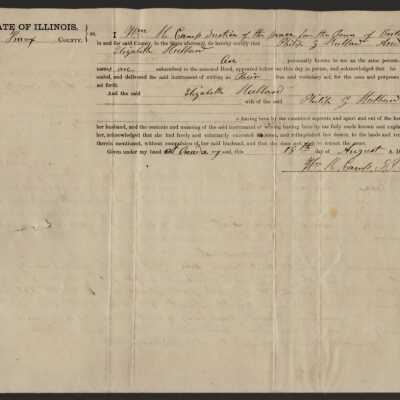 ATE OF ILLINOIS,
Knox COUNTY. } ss. I Wm H. Camp Justice of the peace for the Town of
in and for said County, in the State aforesaid, do hereby certify that Philip G Hubbard And
Elizabeth Hubbard
Are personally known to me as the same person
name are subscribed to the annexed Deed, appeared before me this day in person, and acknowledged that he
sealed, and delivered the said instrument of writing as Their free and voluntary act, for the uses and purposes
set forth.
And the said Elizabeth Hubbard
wife of the said Philip G Hubbard
having been by me examined separate and apart and out of the hea
her husband, and the contents and meaning of the said instrument of writing having been by me fully made known and expla
her, acknowledged that she had freely and voluntarily executed the same, and relinquished her dower to the lands and ten
therein mentioned, without compulsion of her said husband, and that she does not wish to retract the same.
Given under my hand and this 15th day of August A. D.
Wm H. Camp J.P.